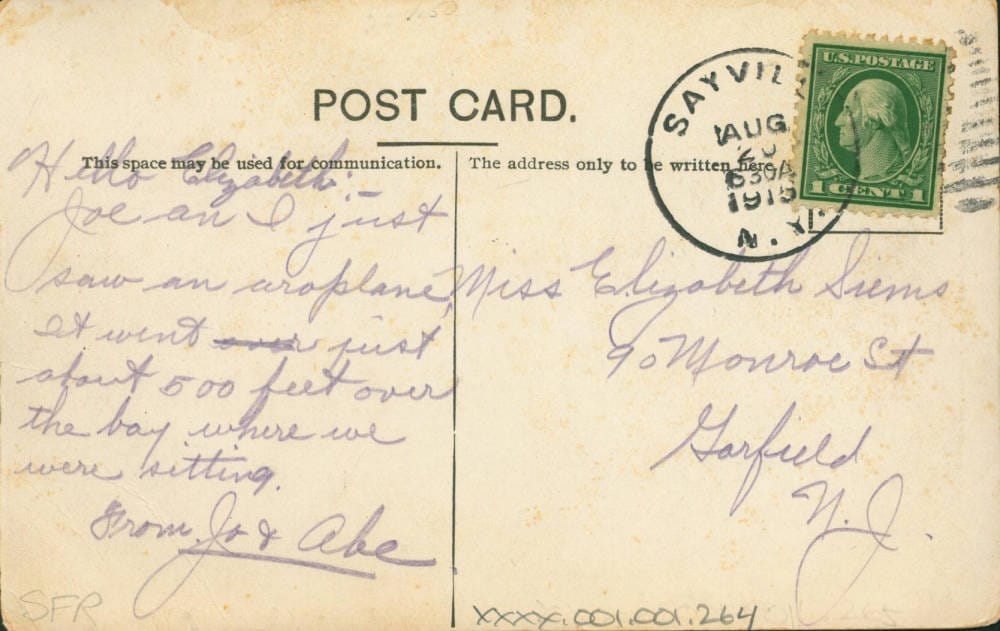 POST CARD.
This space may be used for communication.
The address only to be written here.
SAYVILLE
AUG
20
630A
1915
N.Y.
U.S. POSTAGE
1 CENT 1
Hello Elizabeth: —
Joe an I just
saw an aroplane,
It went over just
about 500 feet over
the bay where we
were sitting.
From Jo & Abe
Miss Elizabeth Siems
90 Monroe St
Garfield
N.J.
SFR
XXXX.001.001.264